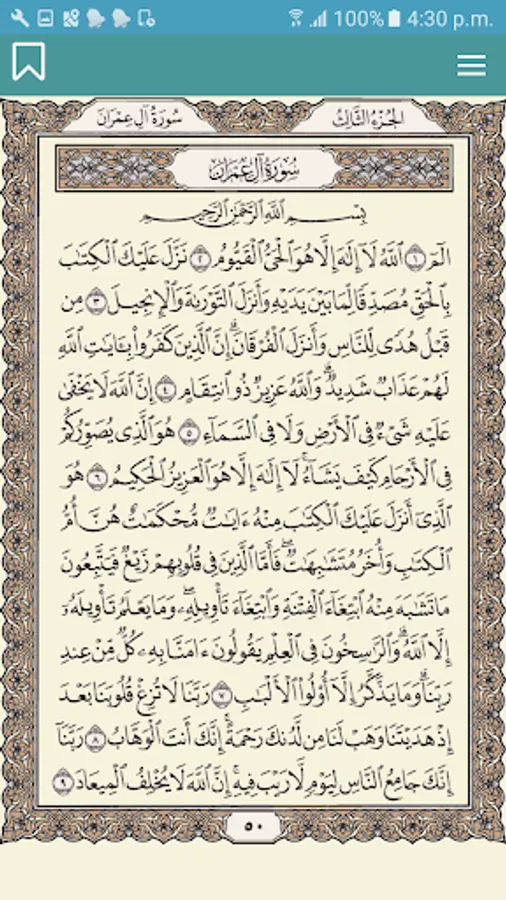 100% 4:30 p.m.
الجزء الثالث سورة آل عمران
سورة آل عمران
بسم الله الرحمن الرحيم
الٓمٓ ١ ٱللَّهُ لَآ إِلَٰهَ إِلَّا هُوَ ٱلۡحَيُّ ٱلۡقَيُّومُ ٢ نَزَّلَ عَلَيۡكَ ٱلۡكِتَٰبَ
بِٱلۡحَقِّ مُصَدِّقٗا لِّمَا بَيۡنَ يَدَيۡهِ وَأَنزَلَ ٱلتَّوۡرَىٰةَ وَٱلۡإِنجِيلَ ٣ مِن
قَبۡلُ هُدٗى لِّلنَّاسِ وَأَنزَلَ ٱلۡفُرۡقَانَۗ إِنَّ ٱلَّذِينَ كَفَرُواْ بِـَٔايَٰتِ ٱللَّهِ
لَهُمۡ عَذَابٞ شَدِيدٞۗ وَٱللَّهُ عَزِيزٞ ذُو ٱنتِقَامٍ ٤ إِنَّ ٱللَّهَ لَا يَخۡفَىٰ
عَلَيۡهِ شَيۡءٞ فِي ٱلۡأَرۡضِ وَلَا فِي ٱلسَّمَآءِ ٥ هُوَ ٱلَّذِي يُصَوِّرُكُمۡ
فِي ٱلۡأَرۡحَامِ كَيۡفَ يَشَآءُۚ لَآ إِلَٰهَ إِلَّا هُوَ ٱلۡعَزِيزُ ٱلۡحَكِيمُ ٦ هُوَ
ٱلَّذِيٓ أَنزَلَ عَلَيۡكَ ٱلۡكِتَٰبَ مِنۡهُ ءَايَٰتٞ مُّحۡكَمَٰتٌ هُنَّ أُمُّ
ٱلۡكِتَٰبِ وَأُخَرُ مُتَشَٰبِهَٰتٞۖ فَأَمَّا ٱلَّذِينَ فِي قُلُوبِهِمۡ زَيۡغٞ فَيَتَّبِعُونَ
مَا تَشَٰبَهَ مِنۡهُ ٱبۡتِغَآءَ ٱلۡفِتۡنَةِ وَٱبۡتِغَآءَ تَأۡوِيلِهِۦۖ وَمَا يَعۡلَمُ تَأۡوِيلَهُۥٓ
إِلَّا ٱللَّهُۗ وَٱلرَّٰسِخُونَ فِي ٱلۡعِلۡمِ يَقُولُونَ ءَامَنَّا بِهِۦ كُلّٞ مِّنۡ عِندِ
رَبِّنَاۗ وَمَا يَذَّكَّرُ إِلَّآ أُوْلُواْ ٱلۡأَلۡبَٰبِ ٧ رَبَّنَا لَا تُزِغۡ قُلُوبَنَا بَعۡدَ
إِذۡ هَدَيۡتَنَا وَهَبۡ لَنَا مِن لَّدُنكَ رَحۡمَةًۚ إِنَّكَ أَنتَ ٱلۡوَهَّابُ ٨ رَبَّنَآ
إِنَّكَ جَامِعُ ٱلنَّاسِ لِيَوۡمٖ لَّا رَيۡبَ فِيهِۚ إِنَّ ٱللَّهَ لَا يُخۡلِفُ ٱلۡمِيعَادَ ٩
٥٠